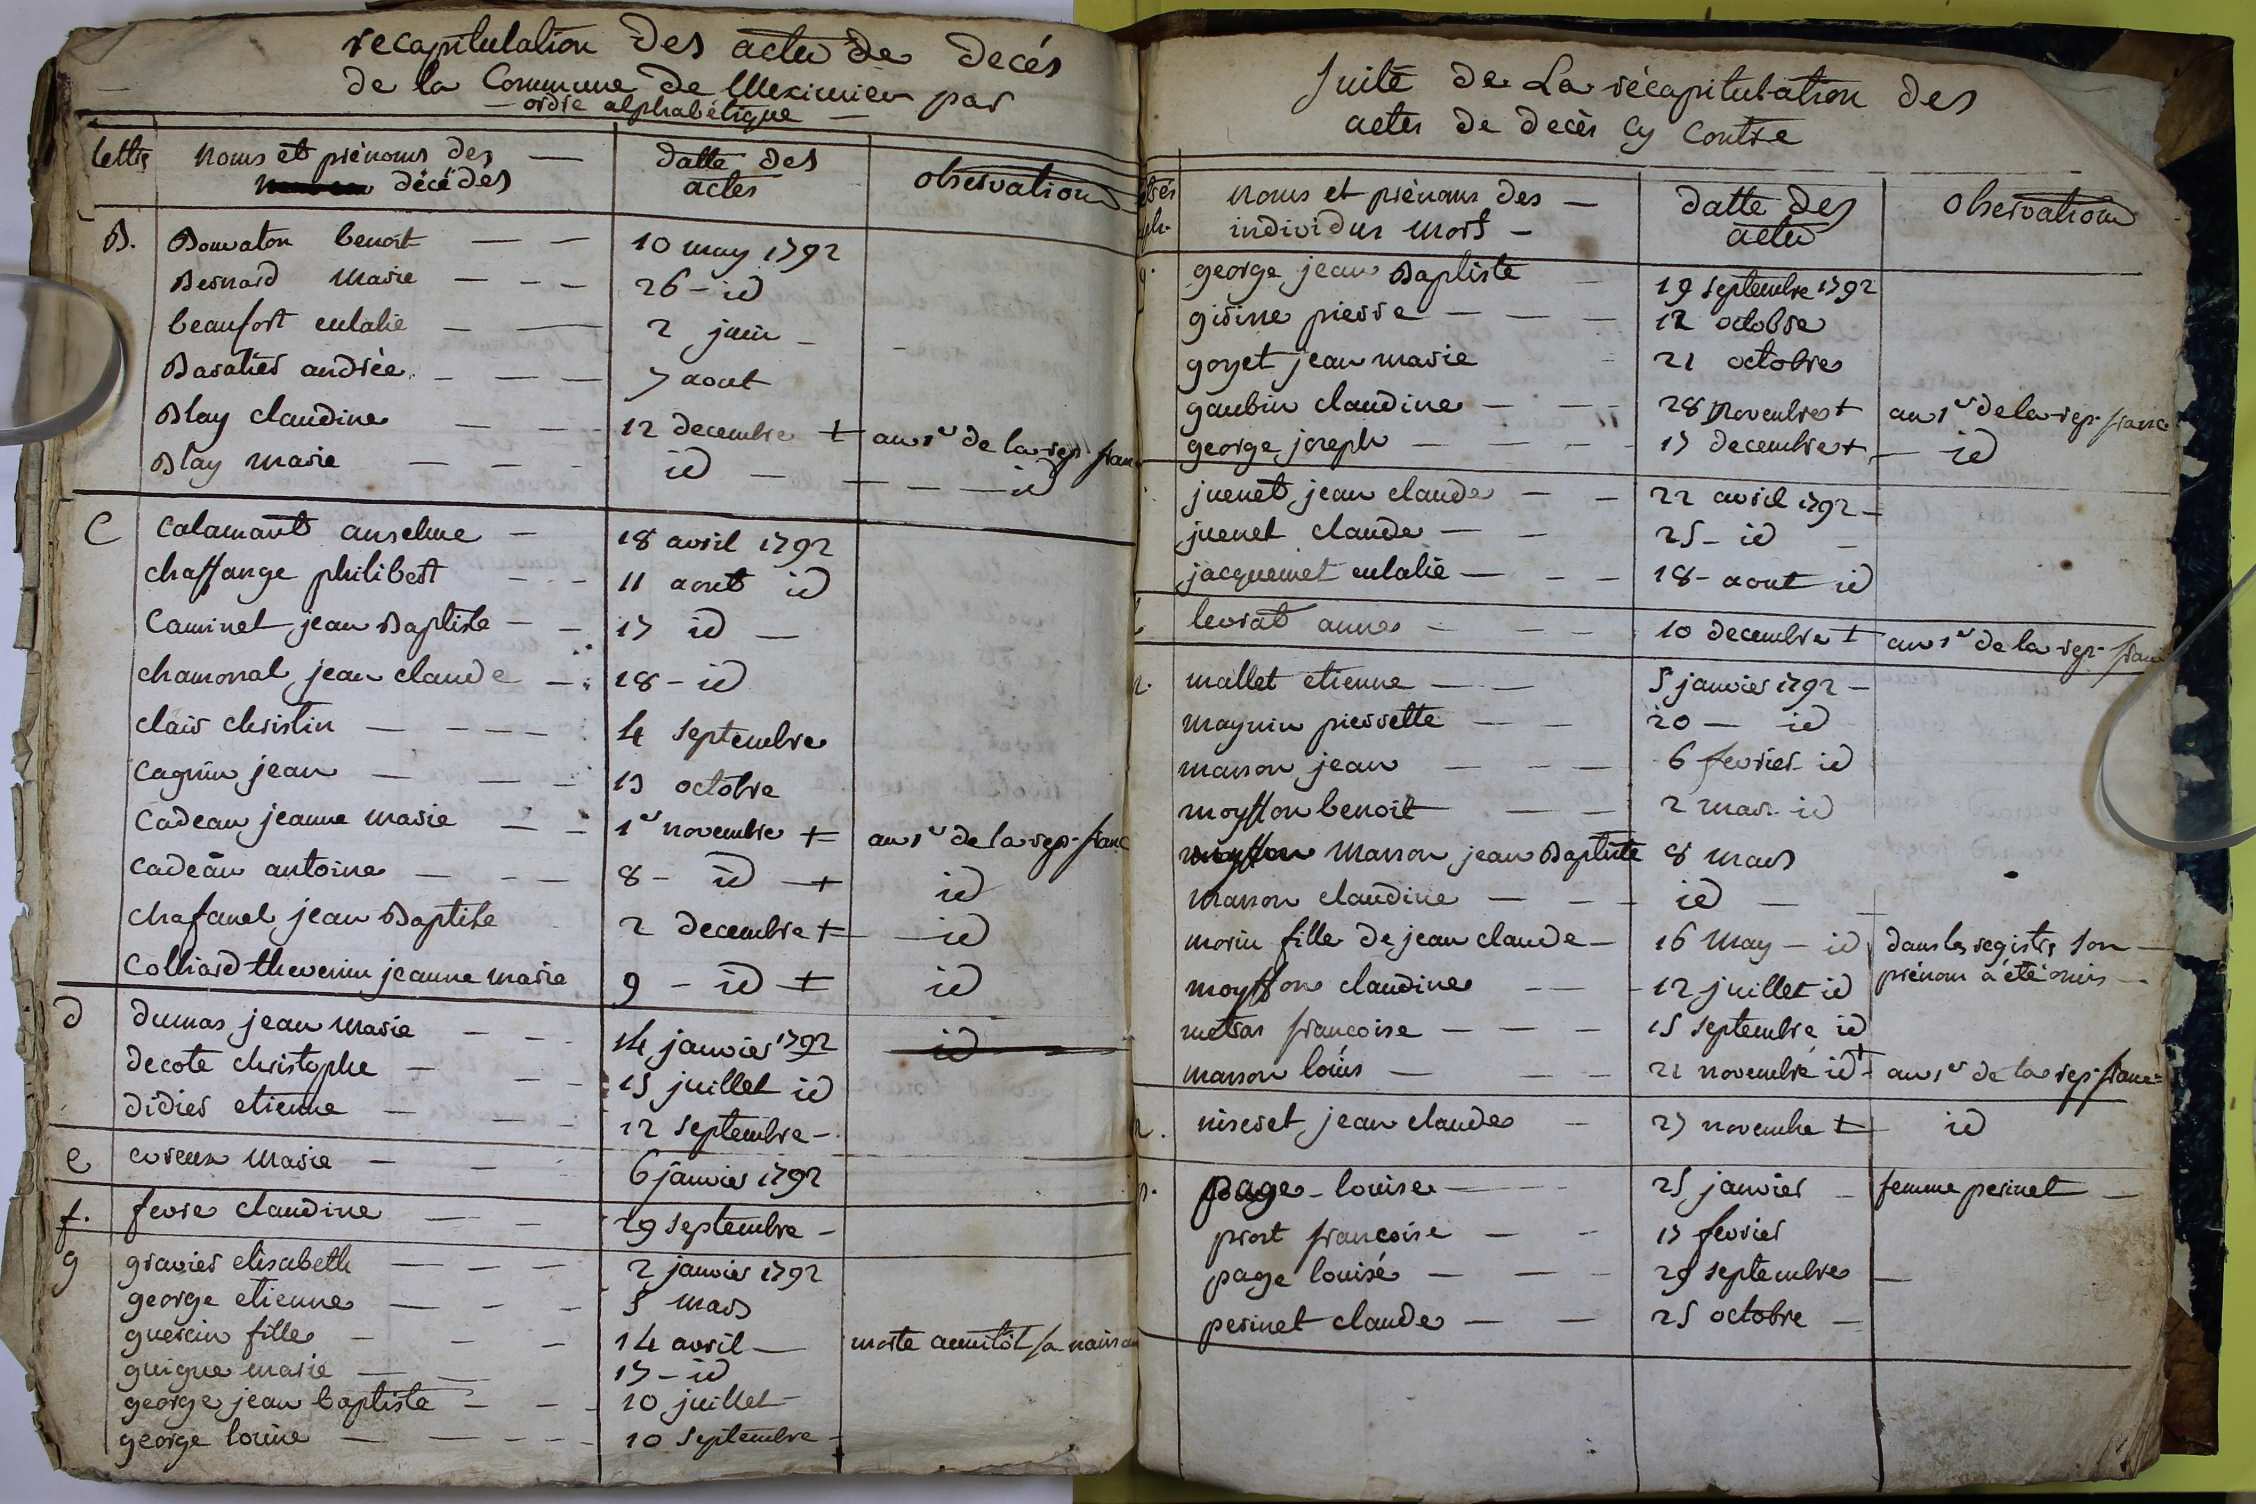 recapitulation des actes de decés
de la Commune de Meximieu par
ordre alphabétique
lettres noms et prénoms des décédés datte des actes observations
B. Bouvaton benoit 10 may 1792
Bernard marie 26 - id
beaufort eulalie 2 juin
Baratier andrée 7 aout
Blay claudine 12 decembre + an 1er de la rep. franc
Blay marie id id
C Calamant anselme 18 avril 1792
chaffange philibert 11 aout id
Caminet jean Baptiste 17 id
chamonal jean claude 18 - id
clair christin 4 septembre
Cagnin jean 13 octobre
Cadeau jeanne marie 1er novembre + an 1er de la rep. franc
Cadeau antoine 8 - id + id
chafanel jean Baptiste 2 decembre + id
Colliard thevenin jeanne marie 9 - id + id
d dumas jean marie 14 janvier 1792
decote christophe 15 juillet id
didier etienne 12 septembre
e evreux marie 6 janvier 1792
f. fevre claudine 29 septembre
g gravier elisabeth 2 janvier 1792
george etienne 5 mars
guercin fille 14 avril morte aussitôt sa naissan
guigue marie 17 - id
george jean baptiste 10 juillet
george louise 10 septembre
Suite de La récapitulation des
actes de decès cy Contre
noms et prénoms des individus morts datte des actes observations
g. george jean Baptiste 19 septembre 1792
girine pierre 12 octobre
goyet jean marie 21 octobre
gaubin claudine 28 novembre + an 1er de la rep. franc
george joseph 17 decembre + id
juenet jean claude 22 avril 1792
juenet claude 25 - id
jacquemet eulalie 18 - aout id
l levrat anne 10 decembre + an 1er de la rep. franc
mallet etienne 5 janvier 1792
maynin pierrette 20 - id
masson jean 6 fevrier id
moyffon benoit 2 mars id
masson jean Baptiste 8 mars
masson claudine id
morin fille de jean claude 16 may - id dans les registres son
prénom a été omis
moyffon claudine 12 juillet id
metras francoise 15 septembre id
masson louis 21 novembre id + an 1er de la rep. franc
n. niseret jean claude 27 novembre + id
p. page louise 25 janvier femme perinet
prost francoise 17 fevrier
page louise 29 septembre
perinet claude 25 octobre